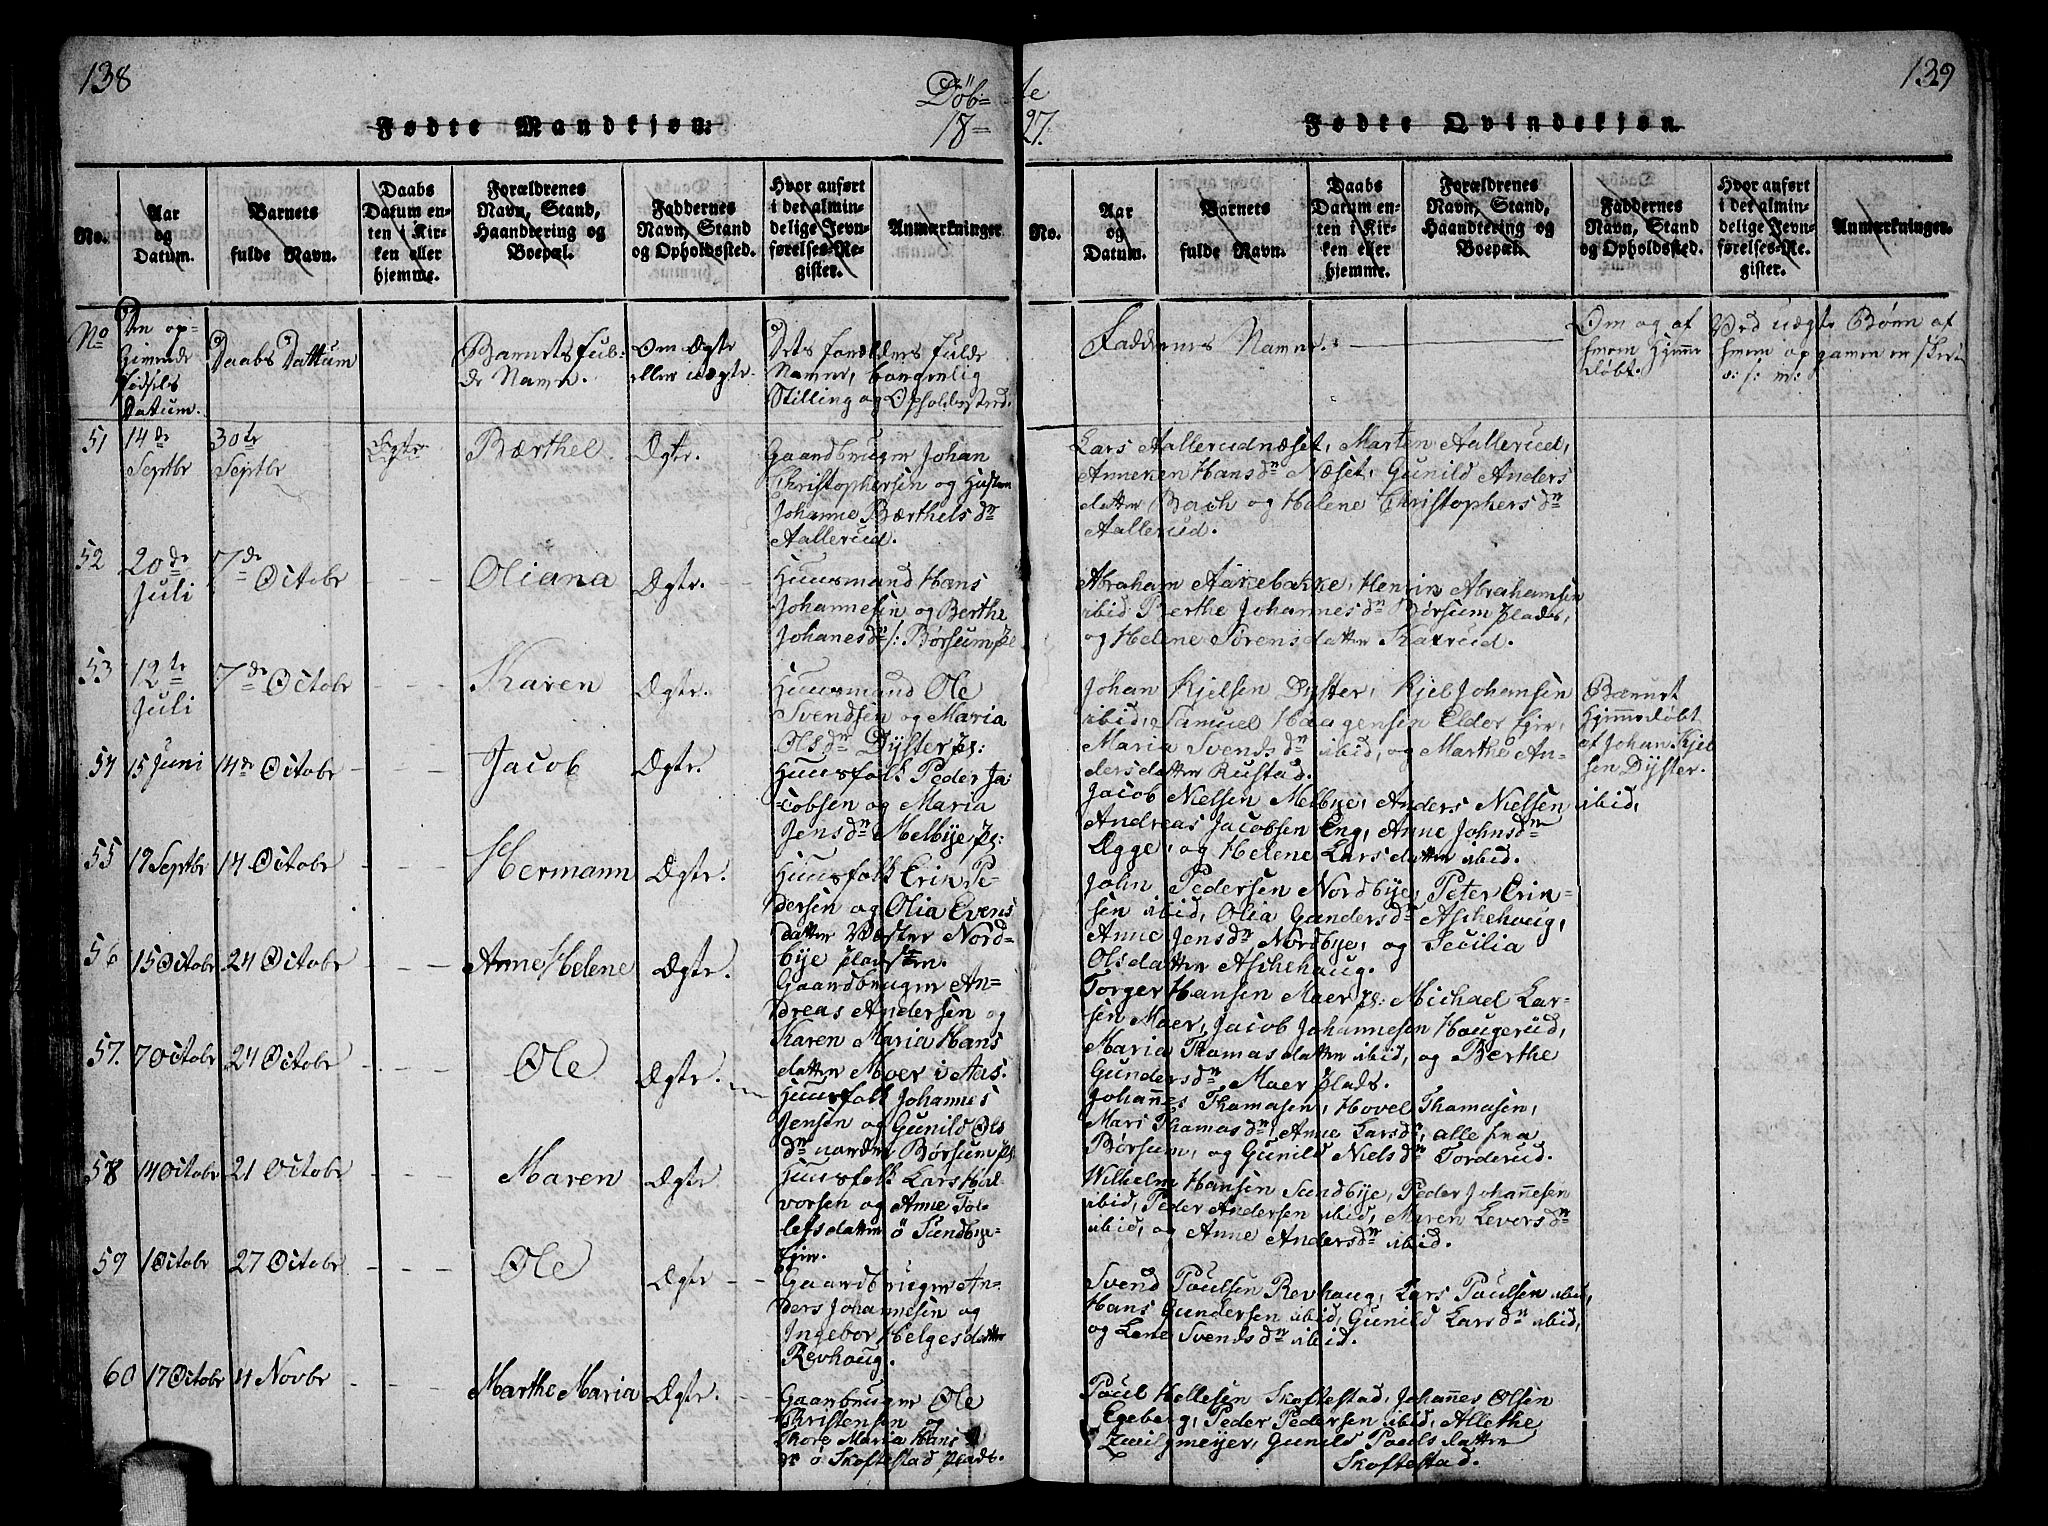 138
Döb=
18=
te
27.
139
Fødte Mandkjøn:
Fødte Qvindekjøn.
No.
Aar og Datum.
Barnets fulde Navn.
Daabs Datum enten i Kirken eller hjemme.
Forældrenes Navn, Stand, Haandtering og Boepæl.
Faddernes Navn, Stand og Opholdssted.
Hvor anført i det almindelige Jevnførelses-Register.
Anmærkninger.
No.
Aar og Datum.
Barnets fulde Navn.
Daabs Datum enten i Kirken eller hjemme.
Forældrenes Navn, Stand, Haandtering og Boepæl.
Faddernes Navn, Stand og Opholdssted.
Hvor anført i det almindelige Jevnførelses-Register.
Anmærkninger.
No
Den op-
Givende
Fødsels
Datum.
Daabs Dattum
Barnets ful-
de Navn.
Om Ægte
eller uægte.
Dets forælders fulde
Navne, borgerlig
Stilling og Opholdssted.
Faddernes Navne.
Om og af
hvem hjemme
döbt.
Ved uægte Børn af
hvem og
s: f: m:
51
14de
Septbr
30te
Septbr
Ægte
Bærthel
Ægte.
Gaardbruger Johan
Christophersen og Hustru
Johanne Bærthels dr
Aallerud.
Lars Aallerudnæset, Marten Aallerud,
Anneken Hansdr Næset, Gunild Anders
datter Bach og Helene Christophersdr
Aallerud.
52
20de
Juli
7de Octobr
Oliana
Ægte.
Huusmand Hans
Johannesen og Berthe
Johanesdr /: Börsum pl
Abraham Aarnebakke, Henrik Abrahamsen
ibid: Berthe Johannesdr Börsum plads,
og Helene Sörensdatter Skatrud.
53
12te
Juli
7de Octobr
Karen
Ægte.
Huusmand Ole
Svendsen og Maria
Olsdr Dyster pl:
Johan Kjelsen Dyster, Kjel Johansen
ibid, Samuel Haagensen Elder Ejer,
Maria Svendsdr ibid, og Marthe An-
dersdatter Rustad.
Barnet
hjemmedöbt
af Johan Kjel
sen Dyster.
54
15 Juni
14de Octobr
Jacob
Ægte.
Huusfolk Peder Ja-
cobsen og Maria
Jensdr Melbye pl:
Jacob Nielsen Melbye, Anders Nielsen ibid,
Andreas Jacobsen Eng, Anne Johnsdr
Ægge, og Helene Larsdatter ibid.
55
19 Septbr
14 Octobr
Hermann
Ægte.
Huusfolk Erik Pe-
dersen og Olia Evens
datter Væster Nord-
bye pladsen.
John Pedersen Nordbye, Peter Erik-
sen ibid, Olia Gundersdr Aschehoug,
Anne Jensdr Nordbye, og Cecilia
Olsdatter Aschehaug.
56
15 Octobr
24 Octobr
Anne Helene
Ægte.
Gaardbruger An-
dreas Andersen og
Karen Maria Hans
datter Moer i Aas.
Torger Hansen Maer pl: Michael Lar-
sen Moer, Jacob Johannesen Haugerud,
Maria Thomasdatter ibid, og Berthe
Gundersdr Maer plads.
57.
7 Octobr
24 Octobr
Ole
Ægte.
Huusfolk Johannes
Jensen og Gunild Ols
dr nordre Börsum pl:
Johannes Thamasen, Hovel Thamasen,
Mari Thamasdr, Anne Larsdr, alle fra
Börsum, og Gunild Nielsdr Torderud.
58
14 Octobr
21 Octobr
Maren
Ægte.
Huusfolk Lars Hal
vorsen og Anne Tol-
lefsdatter ö Sundbye-
Ejer.
Wilhelm Hansen Sundbye, Peder Johannesen
ibid, Peder Andersen ibid, Maren Leversdr
ibid, og Anne Andersdr ibid.
59
1 Octobr
27 Octobr
Ole
Ægte
Gaardbruger An-
ders Johannesen og
Ingebor Helgesdatter
Revhoug.
Svend Poulsen Revhoug, Lars Poulsen ibid,
Hans Gundersen ibid, Gunild Larsdr ibid,
og Lene Svendsdr ibid.
60
17 Octobr
11 Novbr
Marthe Maria
Ægte.
Gaarbruger Ole
Christensen og
Thore Maria Hans
dr ö Skoftestad plads.
Poul Hellesen Skoftestad, Johannes Olsen
Egeberg, Peder Pedersen ibid, Allethe
Zwilgmeyer, Gunild Poulsdatter
Skoftestad.